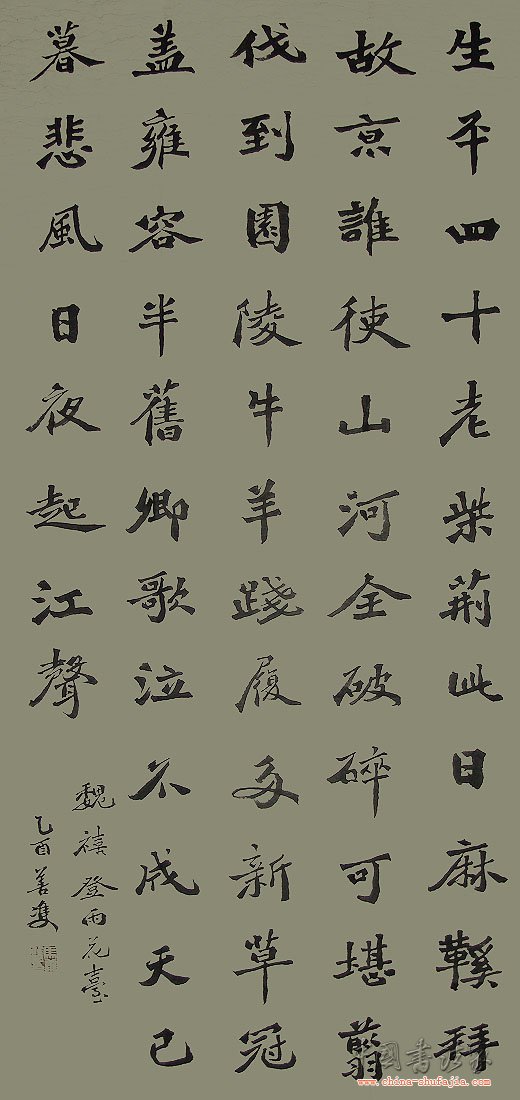 生平四十老柴荆此日麻鞵拜
故亰誰使山河全破碎可堪翦
伐到園陵牛羊踐履多新草冠
盖雍容半舊卿歌泣不成天已
暮悲風日夜起江聲
魏禧登雨花臺
乙酉善
www.china-shufajia.com